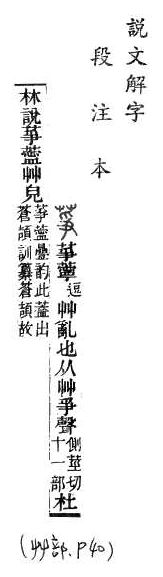 說文解字
段注本
薴逗艸亂也从艸爭聲側莖切
十一部
杜
林說
薴艸皃
薴疊韵此蓋出
蒼頡訓纂蒼頡故
(艸部.P40)